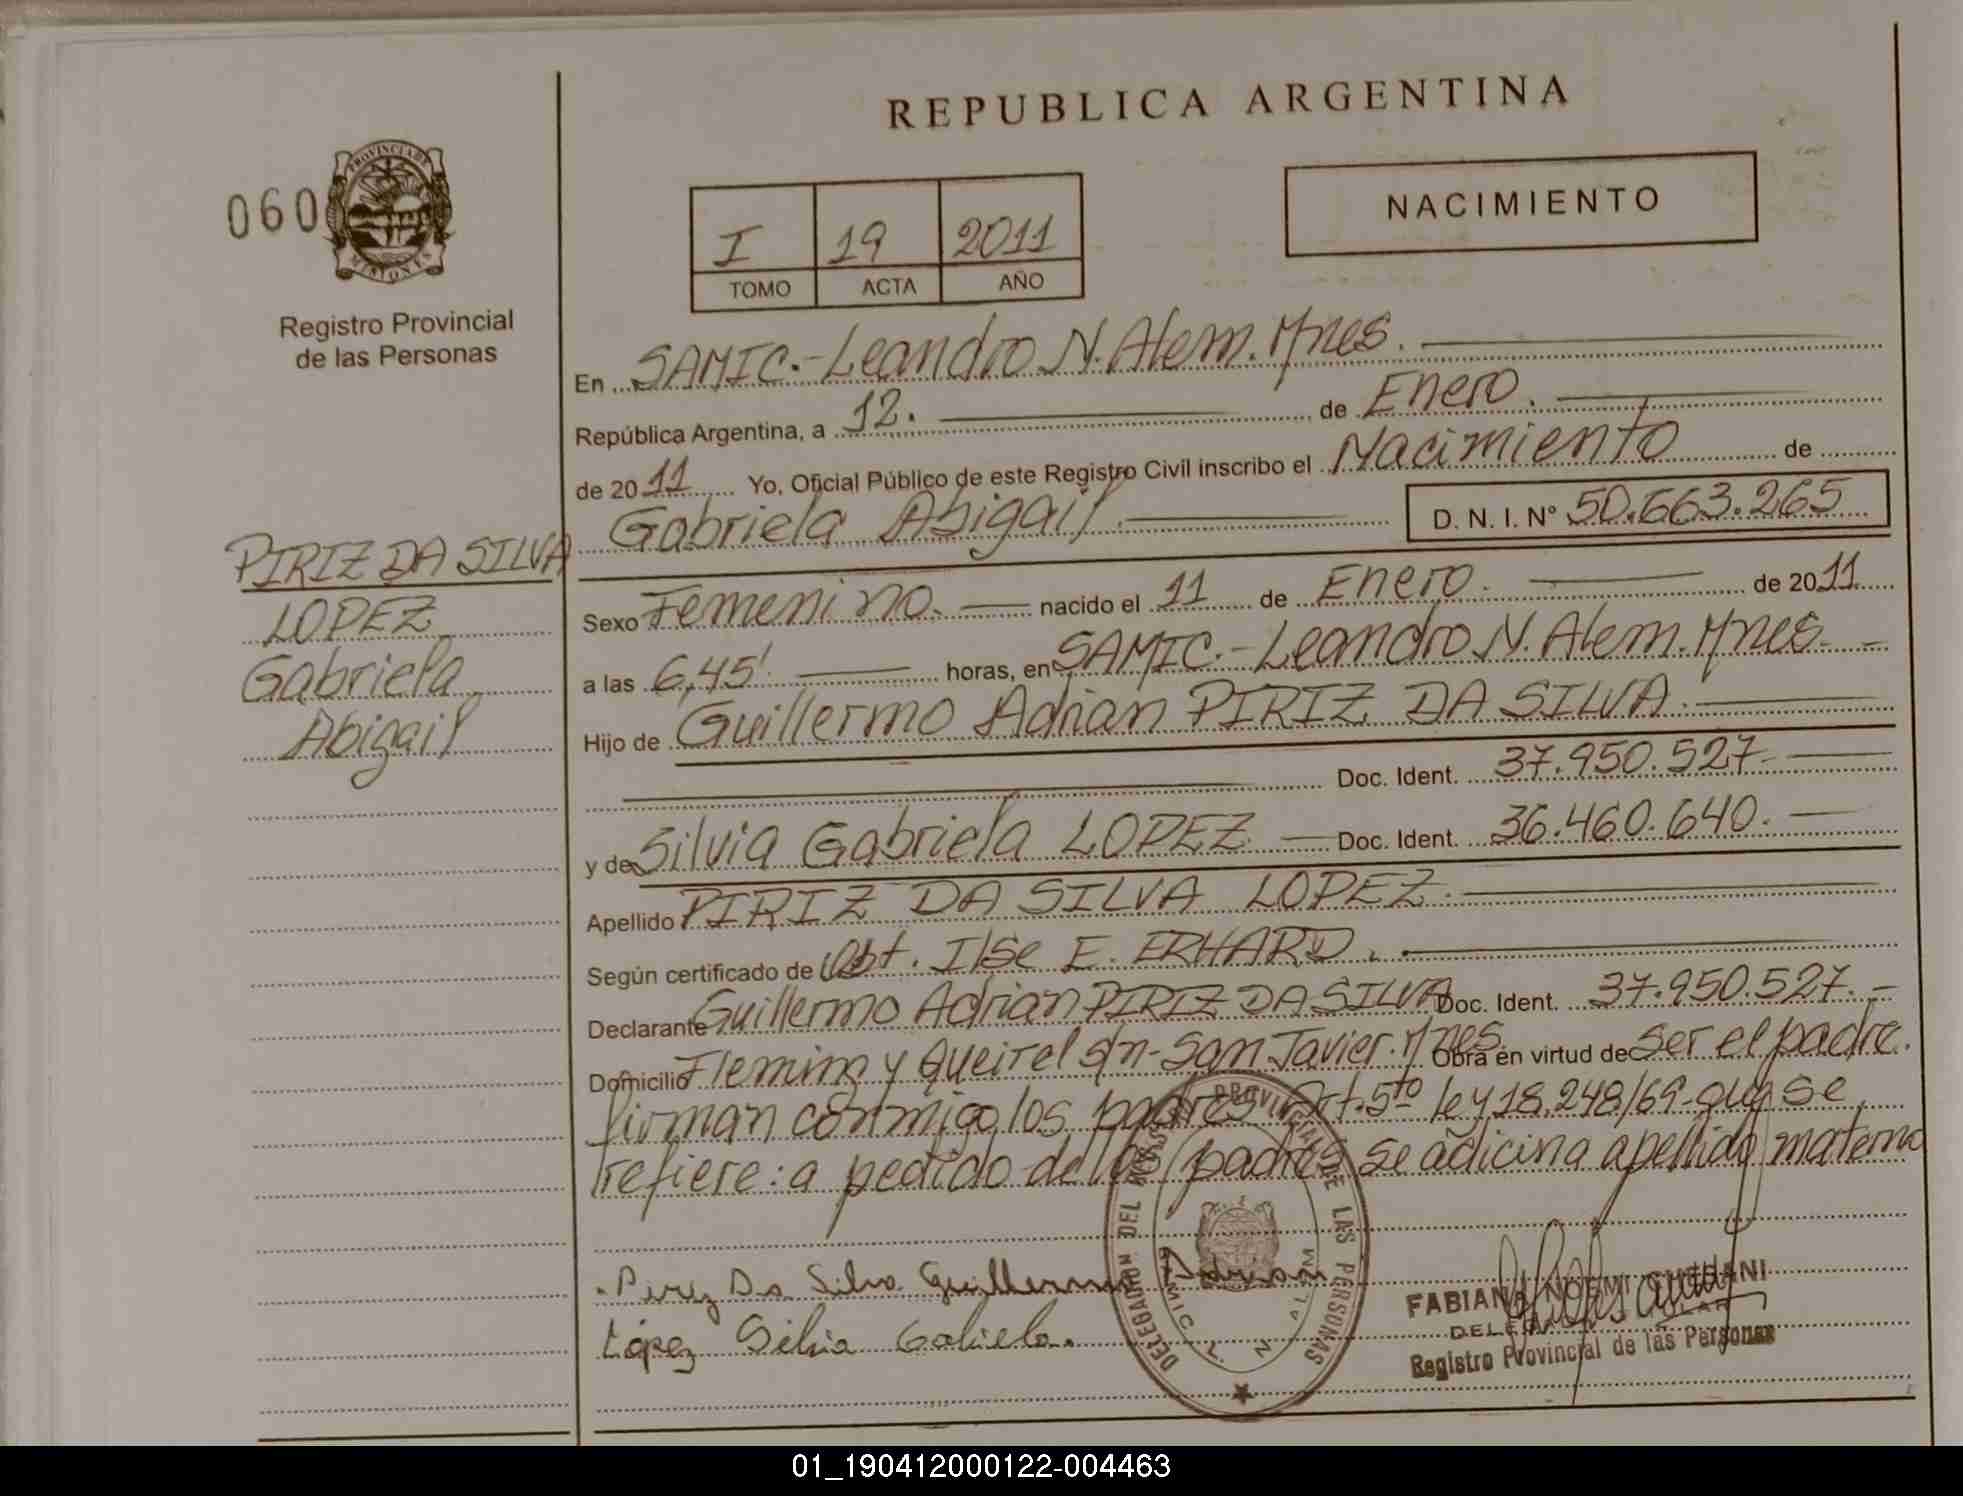 REPUBLICA ARGENTINA
060
PROVINCIA DE
MISIONES
Registro Provincial
de las Personas
I 19 2011
TOMO ACTA AÑO
NACIMIENTO
En SAMIC.-Leandro N. Alem. Mnes.
República Argentina, a 12. de Enero.
de 2011 Yo, Oficial Público de este Registro Civil inscribo el Nacimiento de
Gabriela Abigail. D. N. I. Nº 50.663.265
PIRIZ DA SILVA
LOPEZ
Gabriela
Abigail
Sexo Femenino. nacido el 11 de Enero. de 2011
a las 6,45' horas, en SAMIC.-Leandro N. Alem. Mnes.
Hijo de Guillermo Adrian PIRIZ DA SILVA.
Doc. Ident. 37.950.527.
y de Silvia Gabriela LOPEZ Doc. Ident. 36.460.640.
Apellido PIRIZ DA SILVA LOPEZ.
Según certificado de Obt. Ilse E. ERHARD.
Declarante Guillermo Adrian PIRIZ DA SILVA Doc. Ident. 37.950.527.-
Domicilio Fleming y Queirel s/n-San Javier. Mnes. Obra en virtud de ser el padre.
firman conmigo los padres Art. 5to ley 18.248/69-que se
refiere: a pedido de los padres se adiciona apellido materno
Piriz Da Silva Guillermo Adrian
López Silvia Gabriela.
DELEGACION DEL REGISTRO PROVINCIAL DE LAS PERSONAS
SAMIC L. N. ALEM
FABIANA NOEMI
Registro Provincial de las Personas
01_190412000122-004463